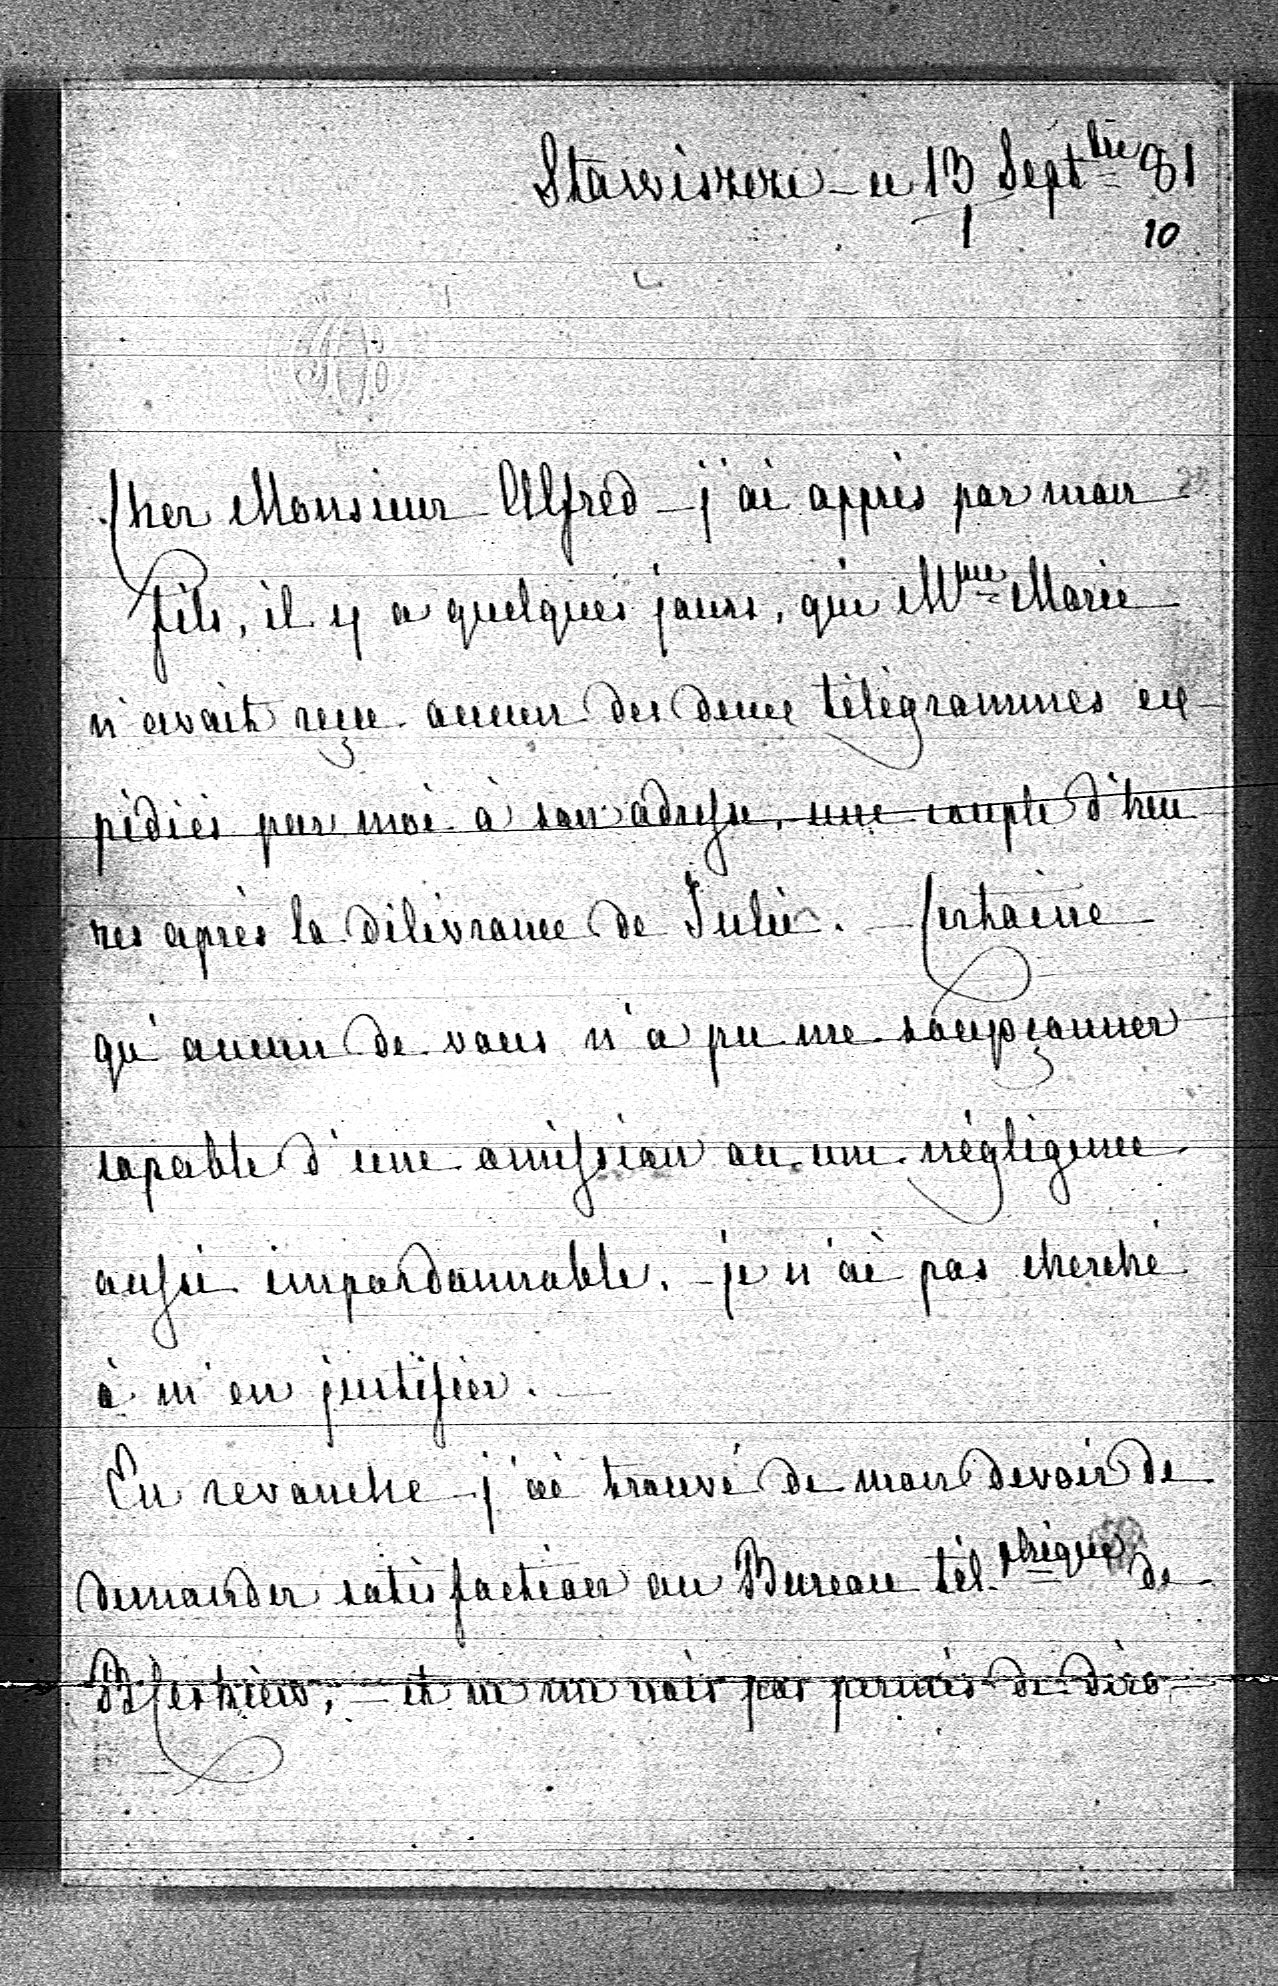 Stawiszcze – ce 13 Septbre 81
1 10
Cher Monsieur Alfred – j'ai appris par mon
fils, il y a quelques jours, que Mme Marie
n'avait reçu aucun des deux télégrammes ex-
pédiés par moi à son adresse, une couple d'heu
res après la délivrance de Julie. – Certaine
qu'aucun de vous n'a pu me soupçonner
capable d'une omission ou une négligence
aussi impardonnable, – je n'ai pas cherché
à m'en justifier. –
En revanche – j'ai trouvé de mon devoir de
demander satisfaction au Bureau tél.phique de
– et ne me suis pas permis de dire –